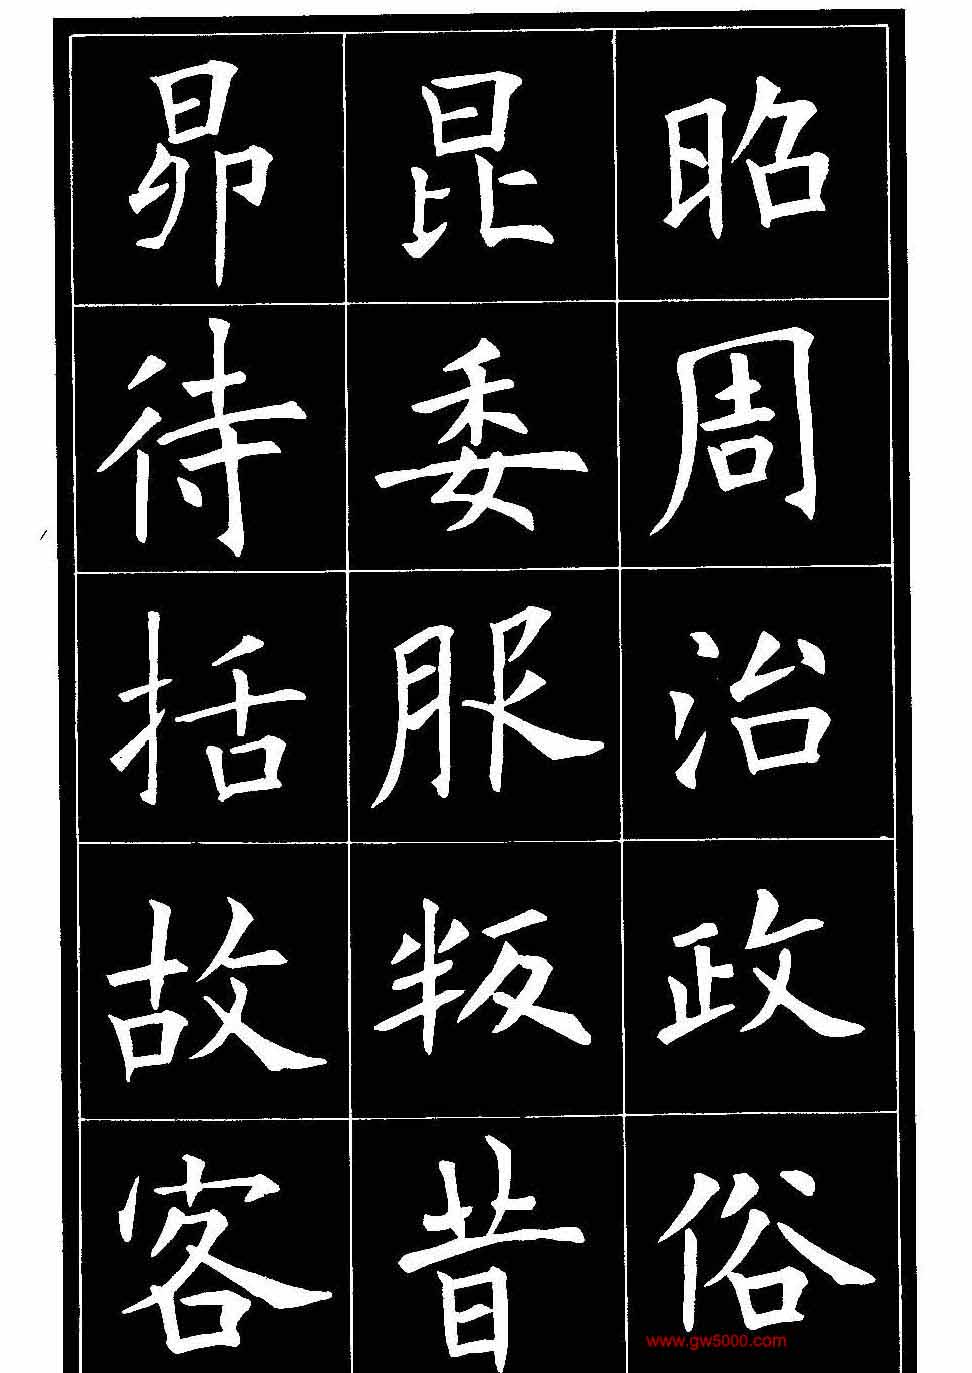 昭周治政俗
昆委服叛昔
昴待括故客
www.gw5000.com